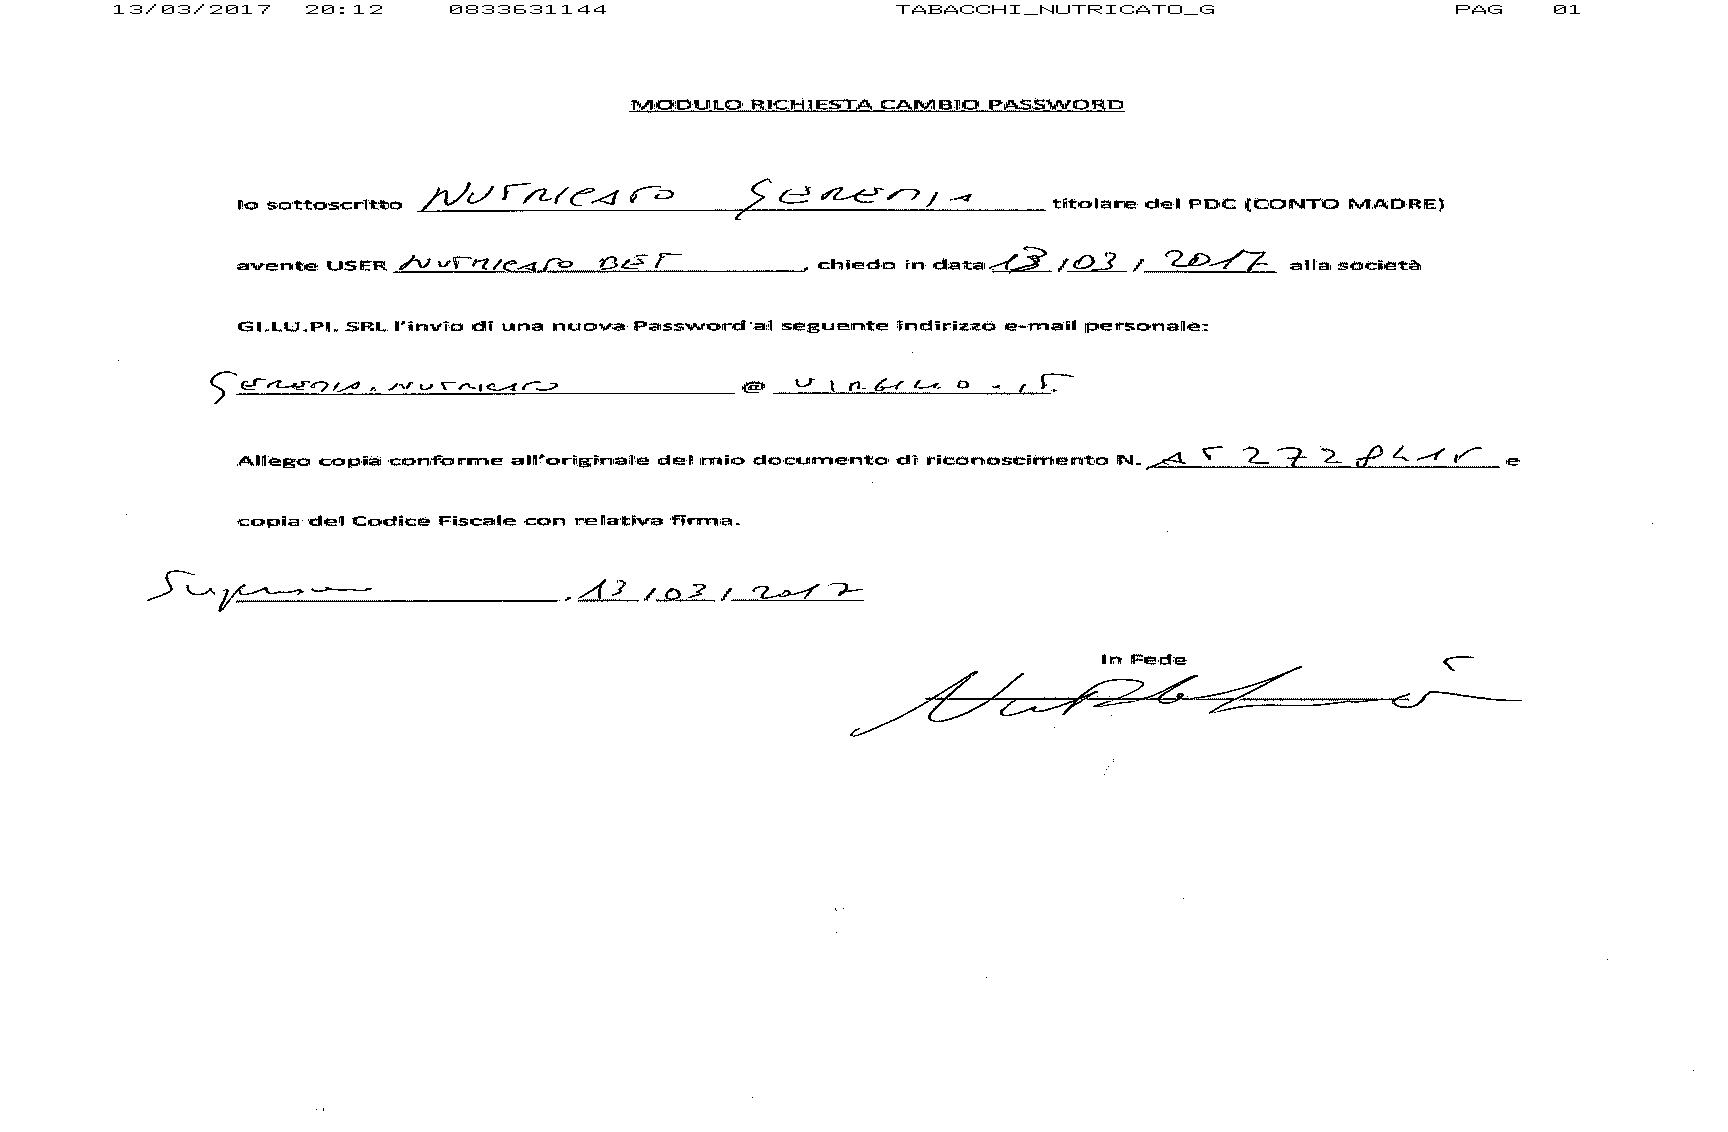 13/03/2017 20:12 0833631144 TABACCHI_NUTRICATO_G PAG 01
MODULO RICHIESTA CAMBIO PASSWORD
Io sottoscritto NUTRICATO GEREMIA titolare del PDC (CONTO MADRE)
avente USER NUTRICATO BET, chiedo in data 13/03/2017 alla società
GI.LU.PI. SRL l'invio di una nuova Password al seguente indirizzo e-mail personale:
GEREMIA.NUTRICATO @ VIRGILIO.IT
Allego copia conforme all'originale del mio documento di riconoscimento N. e
copia del Codice Fiscale con relativa firma.
, 13/03/2017
In Fede